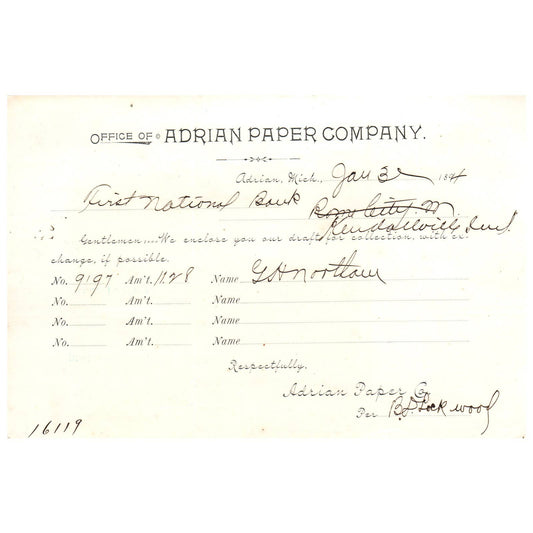 OFFICE OF ADRIAN PAPER COMPANY.
Adrian, Mich., Jan 3 1894
First National Bank Rome City
Kendallville, Ind.
Gentlemen....We enclose you our draft for collection, with ex-
change, if possible.
No. 9197 Am't. 11.28 Name G H Northam
No. Am't. Name
No. Am't. Name
No. Am't. Name
Respectfully,
Adrian Paper Co
Per B D Lockwood
16119